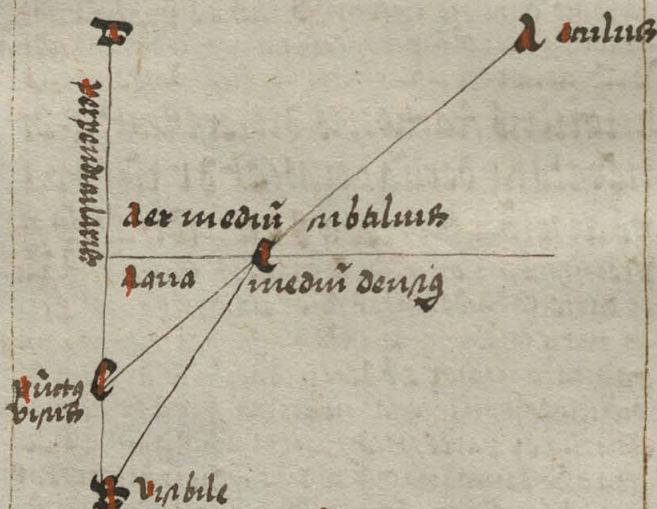 A oculus
perpendicularis
Aer mediū subtilius
Aqua mediū densiꝰ
pūctꝰ
visus
B visibile